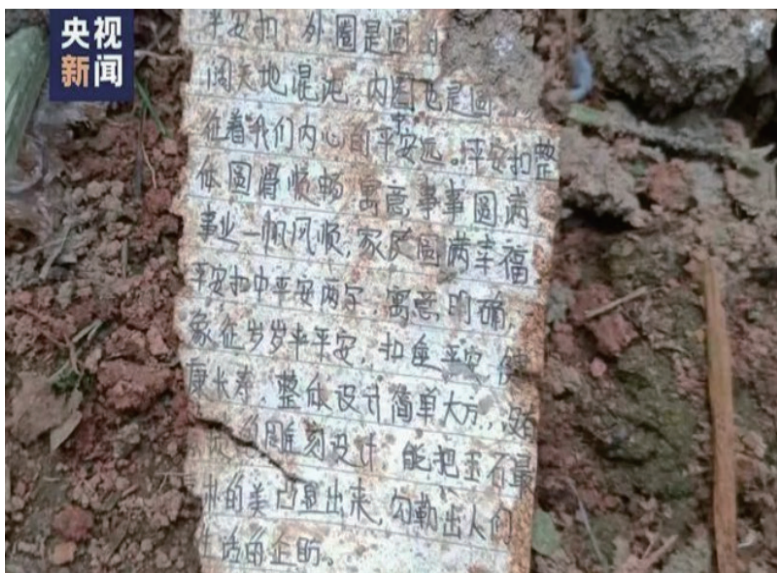 央视
新闻
平安扣，外圈是圆
阔天地混沌，内圈也是圆
征着我们内心的平安远。平安扣整
中
体圆滑顺畅，寓意，事事圆满
事业一帆风顺，家庭圆满幸福
平安扣中平安两字，寓意明确，
象征岁岁平平安，扣住平安，健
康长寿，整体设计简单大方，没有
雕刻设计，能把玉石最
的美凸显出来，勾勒出人们
生活的企盼。